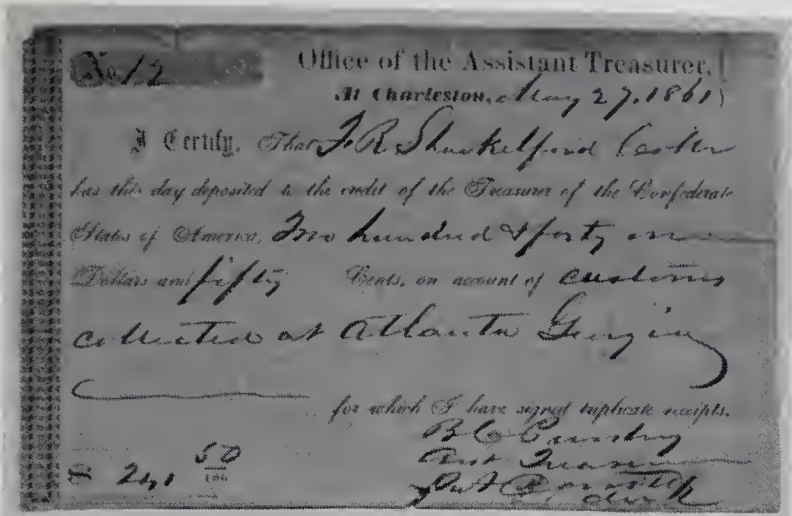 No 12 Office of the Assistant Treasurer,
At Charleston, May 27, 1861
I Certify, That F. R. Shackelford
has this day deposited to the credit of the Treasurer of the Confederate
States of America, Two hundred & forty one
Dollars and fifty Cents, on account of customs
collected at Atlanta Georgia
for which I have signed triplicate receipts.
B C Pressley
Asst Treasurer
$ 241 50/100